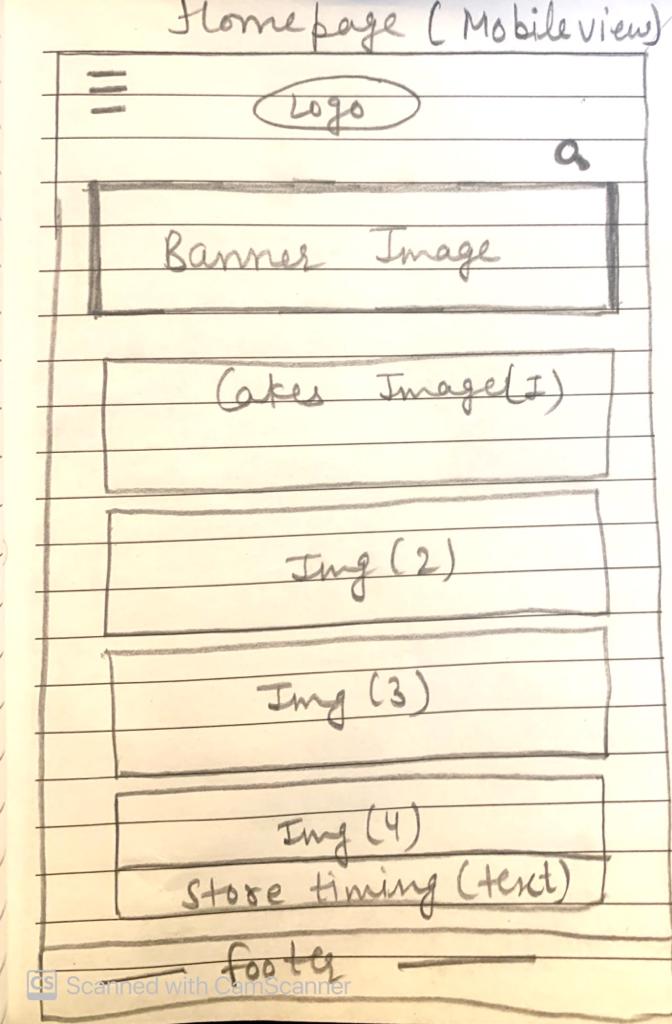 Homepage (Mobile view)
Logo
Banner Image
Cakes Image(I)
Img (2)
Img (3)
Img (4)
Store timing (text)
footer
CS Scanned with CamScanner